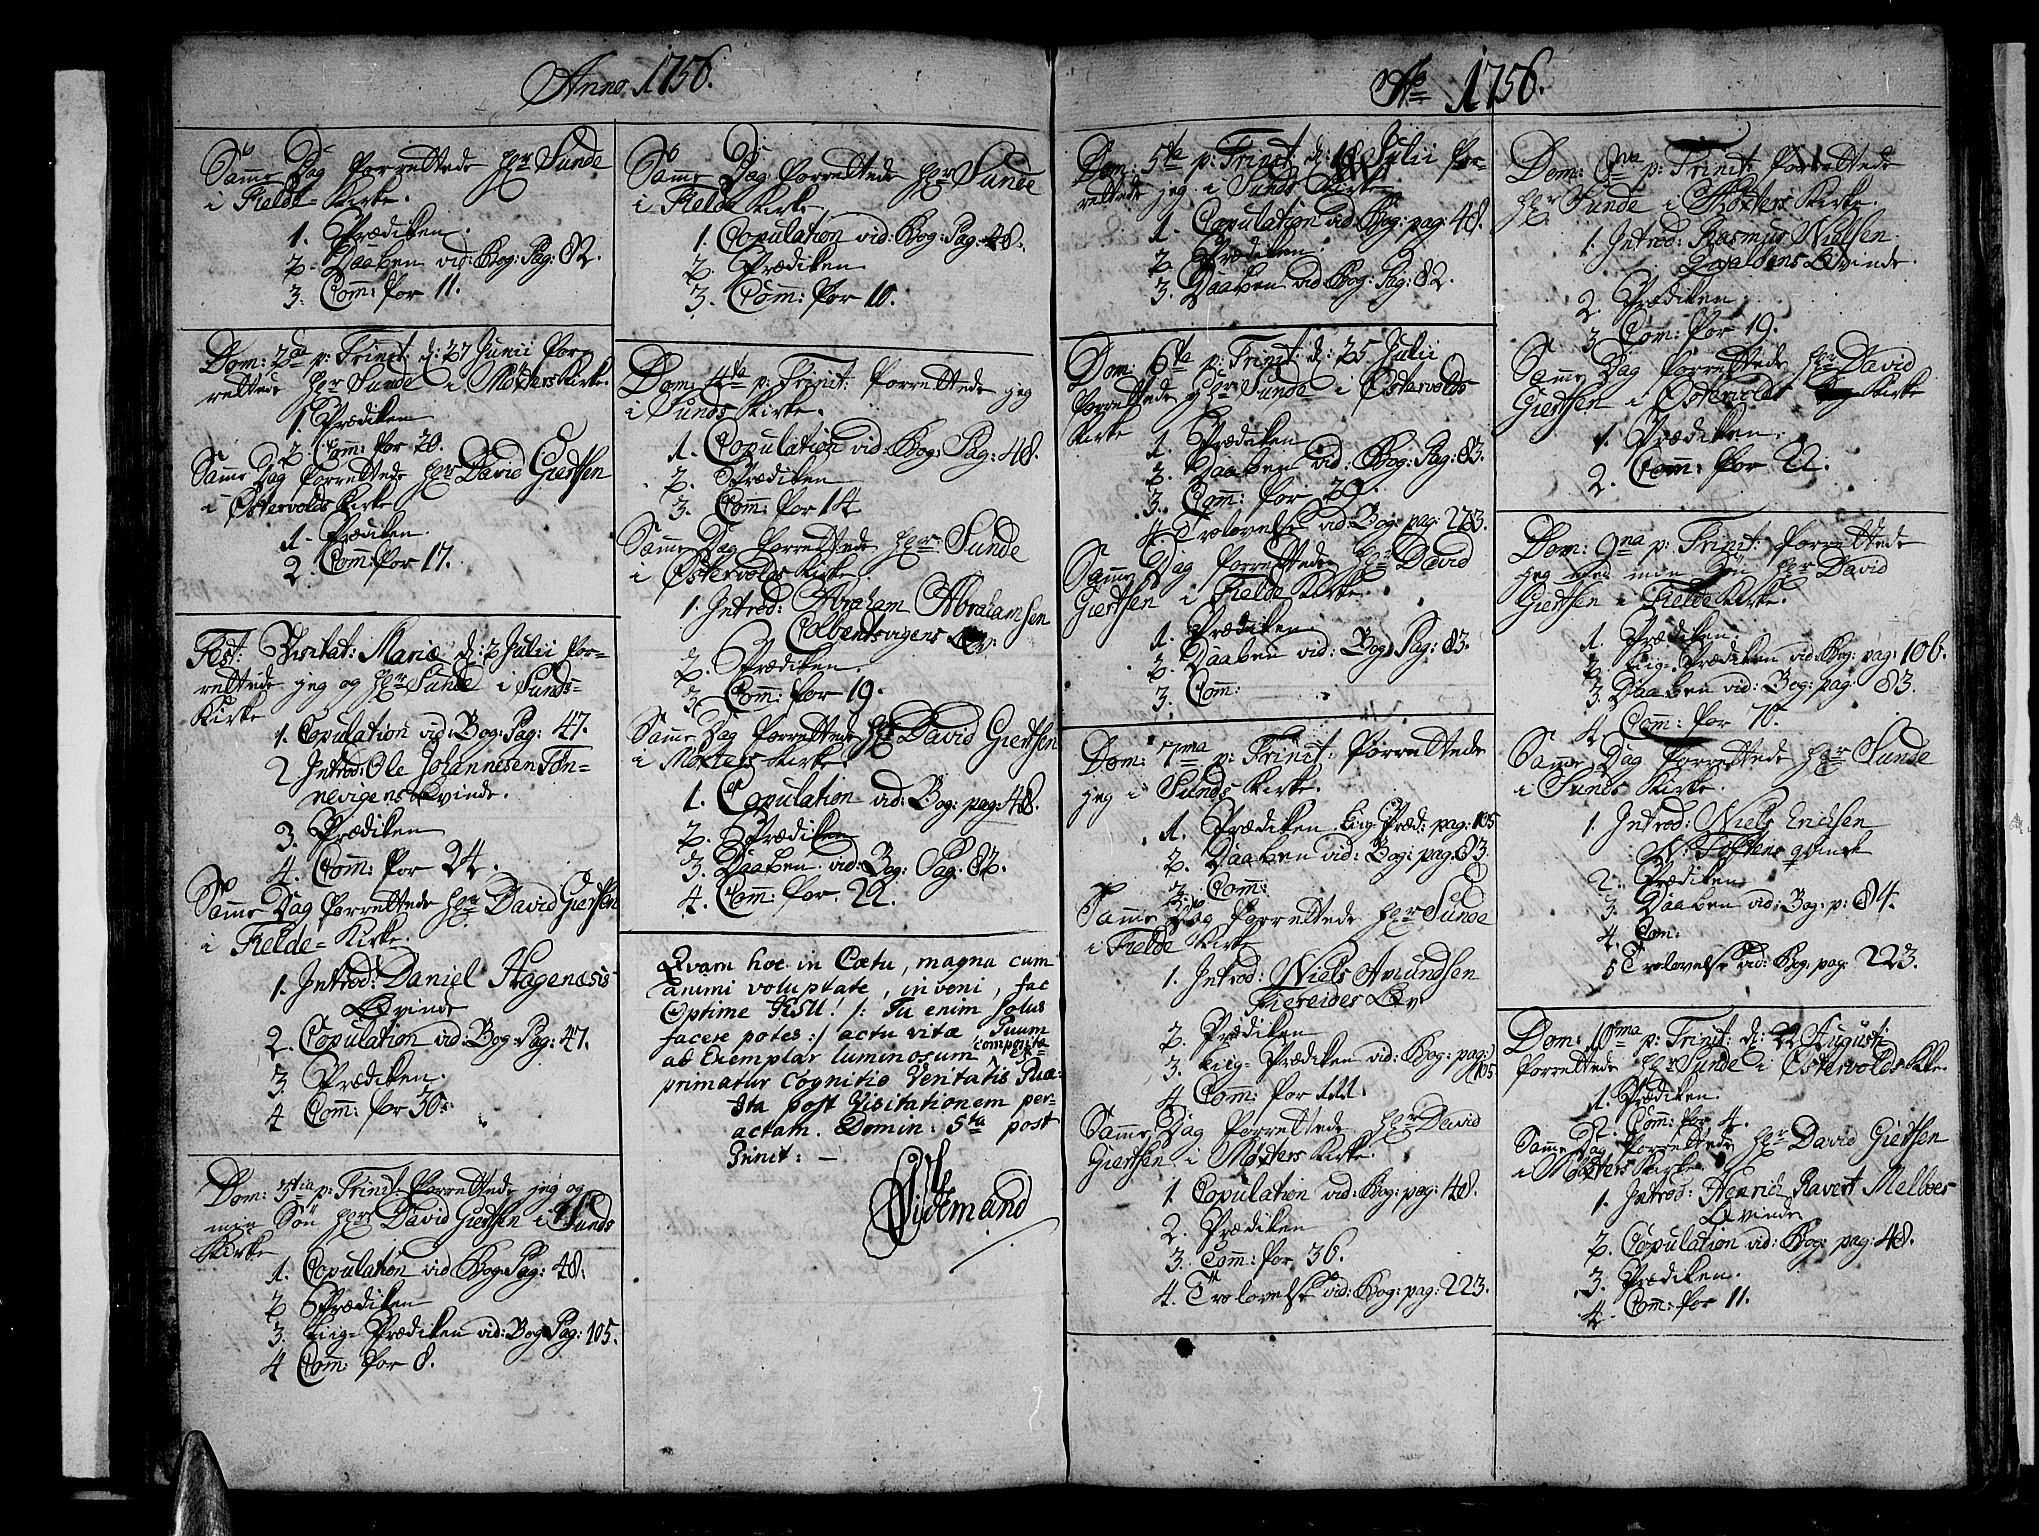 Anno 1756.
Samme Dag forrettede Hr Sunde
i Fielde=Kirke.
1. Prædiken.
2. Daaben vid: Bog: Pag: 82.
3. Com̄: for 11.
Dom: 2da p: Trinit: d: 27 Junii for-
rettede Hr Sunde i Møsters Kirke.
1. Prædiken
2. Com̄: for 20.
Samme Dag forrettede Hr David Giertsen
i Østervolds Kirke
1. Prædiken.
2. Com̄: for 17.
Fest: Visitat: Mariæ d: 2 Julii for-
rettede jeg og Hr Sunde i Sunds=
Kirke
1. Copulation vid: Bog: Pag: 47.
2 Introd: Ole Johannesen Tøn-
nevigens Qvinde.
3. Prædiken
4. Com̄: for 24.
Samme Dag forrettede Hr David Giertsen
i Fielde=Kirke.
1. Introd: Daniel Hagenæsis
Qvinde
2. Copulation vid: Bog: Pag: 47.
3. Prædiken.
4 Com̄: for 30.
Dom: 3tia p: Trinit: forrettede jeg og
min Søn Hr David Giertsen i Sunds
Kirke
1. Copulation vid Bog: Pag: 48.
2 Prædiken
3. Liig=Prædiken vid: Bog: Pag: 105.
4 Com̄: for 8.
Samme Dag forrettede Hr Sunde
i Fielde Kirke.
1. Copulation vid: Bog: Pag: 48.
2. Prædiken.
3. Com̄: for 10.
Dom: 4ta p: Trinit: forrettede jeg
i Sunds Kirke.
1. Copulation vid: Bog: Pag: 48.
2. Prædiken
3. Com̄: for 14
Samme Dag forrettede Hr Sunde
i Østervolds Kirke.
1. Introd: Abraham Abrahamsen
Qv:
2. Prædiken.
3. Com̄: for 19.
Samme Dag forrettede Hr David Giertsen
i Møsters Kirke
1. Copulation vid: Bog: pag: 48.
2. Prædiken
3. Daaben vid: Bog: Pag: 82.
4. Com̄: for 22.
Qvam hoc in Cœtu, magna cum
animi voluptate, inveni, fac
Optime JESU! /: Tu enim solus
facere potes :/ actu vitæ Tuum
ad Exemplar luminosum composita
primatur Cognitio Veritatis Tuæ=
Ita post Visitationem per-
actam. Domin: 5ta post
Trinit: —
Widemand
Ao 1756.
Dom: 5ta p: Trinit: d: 18 Julii for-
rettede jeg i Sunds Kirke
1. Copulation vid: Bog: pag: 48.
2. Prædiken.
3. Daaben vid: Bog: Pag: 82.
Dom: 6ta p: Trinit: d: 25 Julii
forrettede Hr Sunde i Østervolds
Kirke
1. Prædiken
2. Daaben vid: Bog: Pag: 83.
3. Com̄: for 29.
4. Trolovelse vid: Bog: pag: 223.
Samme Dag forrettede Hr David
Giertsen i Fielde Kirke.
1. Prædiken.
2. Daaben vid: Bog: Pag: 83.
3. Com̄:
Dom: 7ma p: Trinit: forrettede
jeg i Sunds Kirke.
1. Prædiken Liig=Præd: pag: 105
2. Daaben vid: Bog: pag: 83.
3. Com̄:
Samme Dag forrettede Hr Sunde
i Fielde Kirke
1. Introd: Niels Amundsen
Qv
2. Prædiken
3. Liig=Prædiken vid: Bog: pag:
105
4 Com̄: for
Samme Dag forrettede Hr David
Giertsen i Møsters Kirke.
1. Copulation vid: Bog: pag: 48.
2. Prædiken
3. Com̄: for 36.
4. Trolovelse vid: Bog: pag: 223.
Dom: 8va p: Trinit: forrettede
Hr Sunde i Møsters Kirke.
1. Introd: Rasmus Nielsen
Qvinde.
2. Prædiken
3 Com̄: for 19.
Samme Dag forrettede Hr David
Giertsen i Østervolds Kirke
1. Prædiken.
2. Com̄: for 22.
Dom: 9na p: Trinit: forrettede
jeg med min Søn Hr David
Giertsen i Fielde Kirke.
1. Prædiken.
2. Liig=Prædiken vid: Bog: pag: 106.
3. Daaben vid: Bog: pag: 83.
4 Com̄: for 70.
Samme Dag forrettede Hr Sunde
i Sunds Kirke.
1. Introd: Niels Erichsen
N: Toftens qvinde
2. Prædiken
3. Daaben vid: Bog: p: 84.
4. Com:
5 Trolovelse vid: Bog: pag: 223.
Dom: 10ma p: Trinit: d: 22 Augusti
forrettede Hr Sunde i Østervolds Kke.
1. Prædiken.
2. Com̄: for 4.
Samme Dag forrettede Hr David Giertsen
i Møsters Kirke
1. Introd: Henrich Ravert Melboes
Qvinde
2. Copulation vid: Bog: pag: 48.
3. Prædiken.
4. Com̄: for 11.